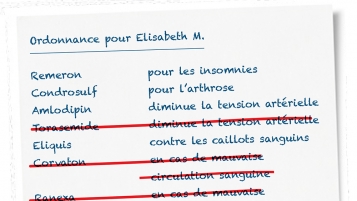 Ordonnance pour Elisabeth M.
Remeron pour les insomnies
Condrosulf pour l'arthrose
Amlodipin diminue la tension artérielle
Torasemide diminue la tension artérielle
Eliquis contre les caillots sanguins
Corvaton en cas de mauvaise
circulation sanguine
Ranexa en cas de mauvaise